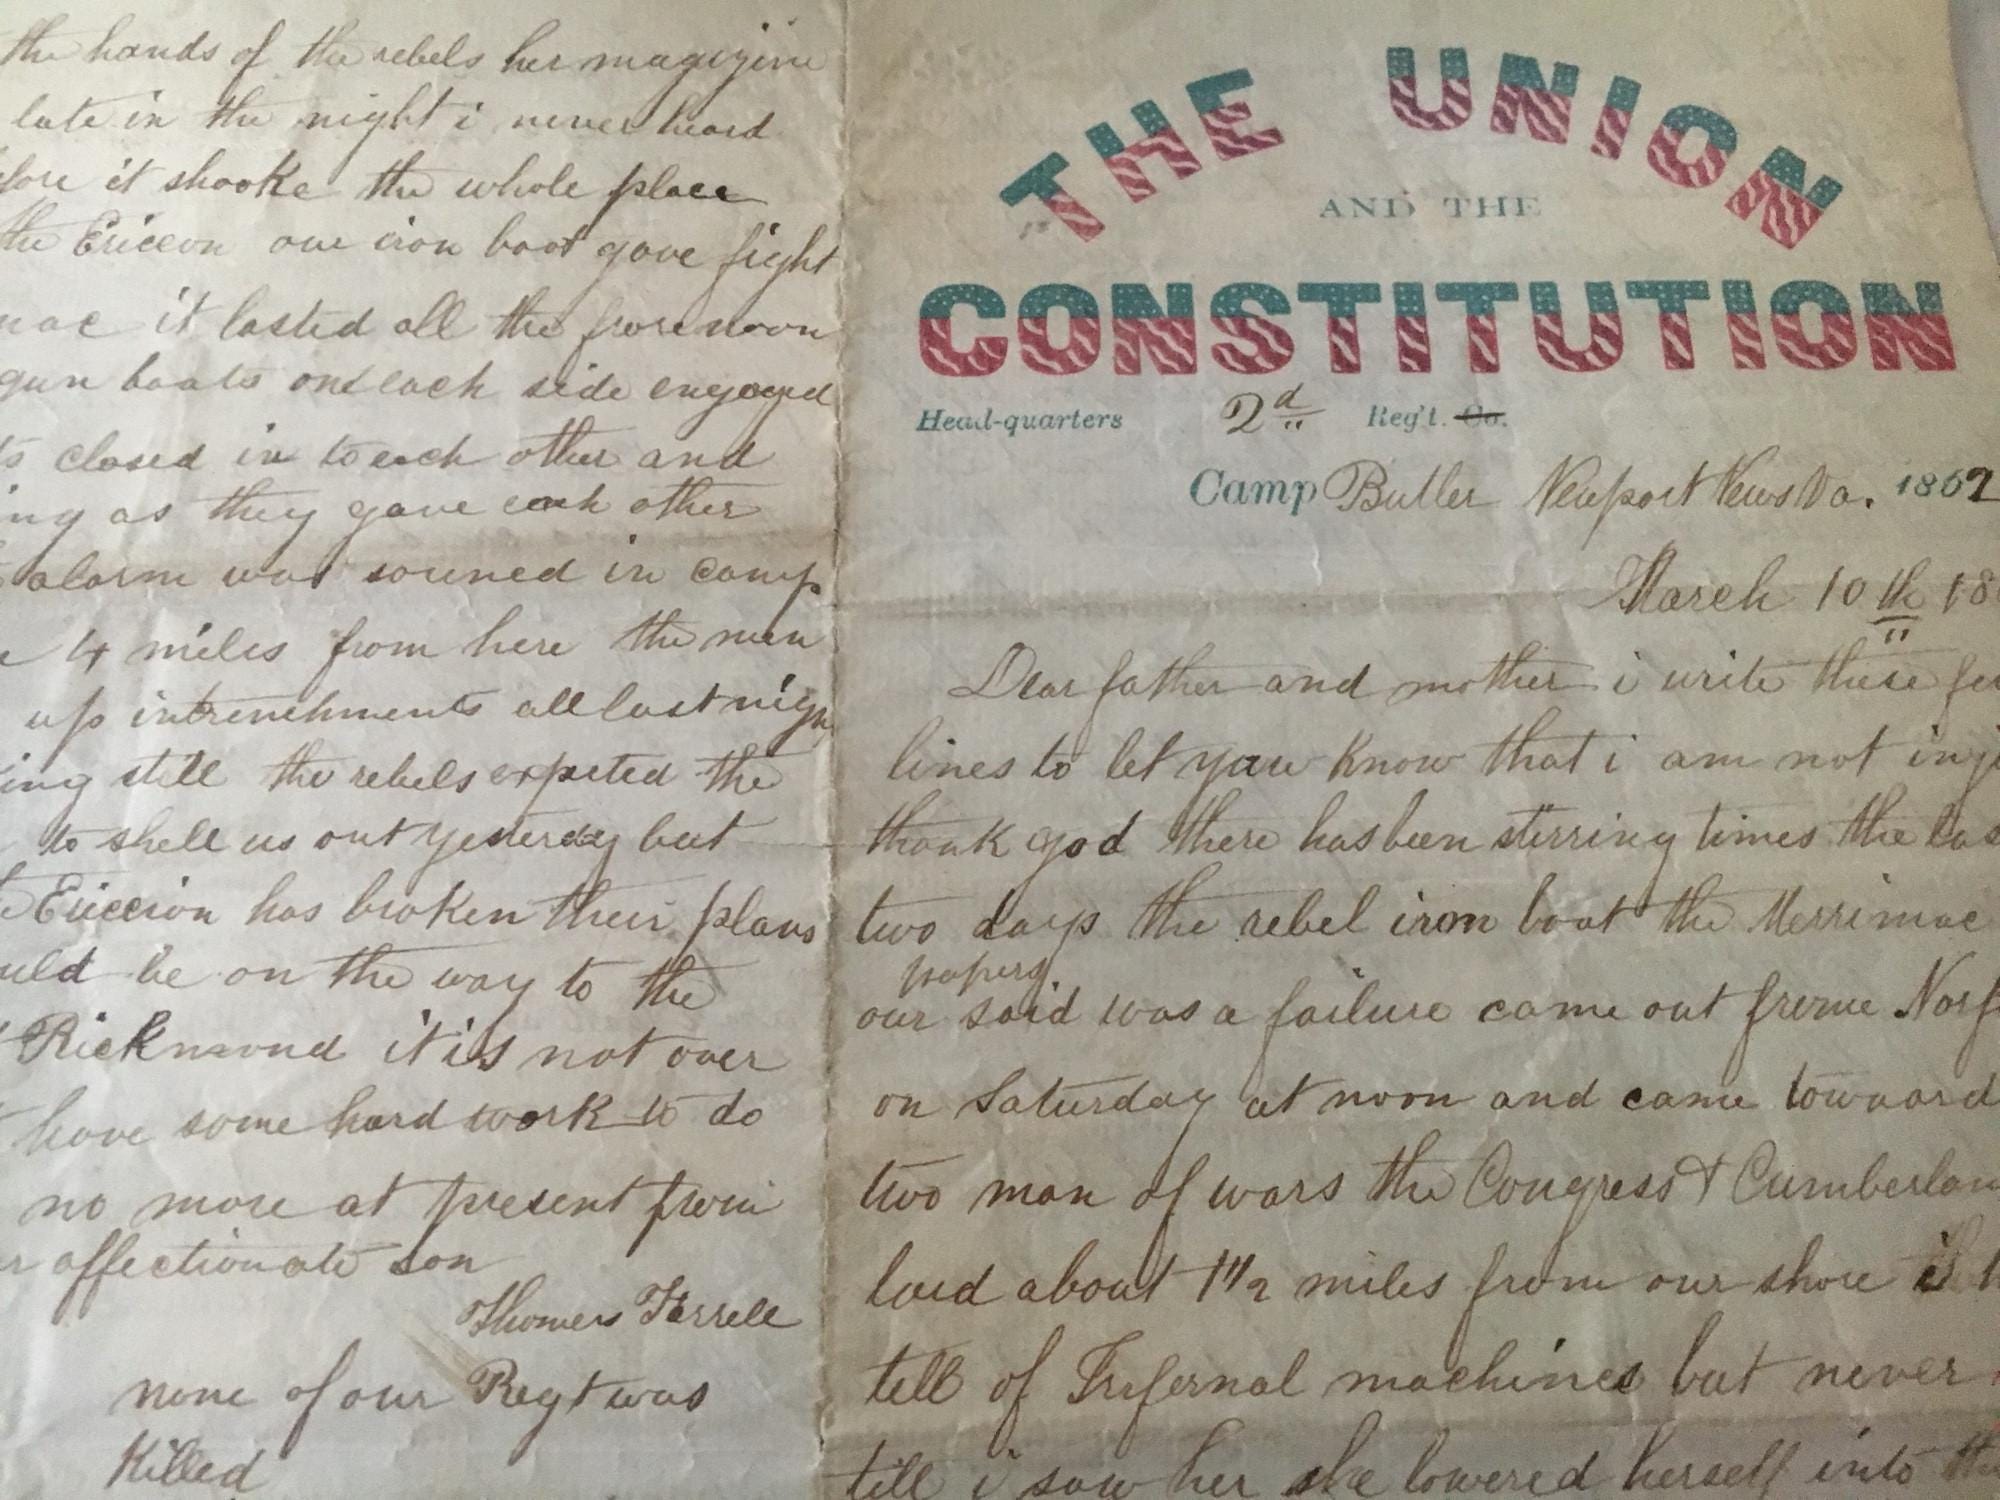 THE UNION
AND THE
CONSTITUTION
Head-quarters 2d Reg't. Co.
Camp Butler Newport News Va. 1862
March 10th 18
Dear father and mother i write these
lines to let yau know that i am not
thank god there has been stirring times the
two days the rebel iron boat the Merrimac
papers
our said was a failure came out frome
on Saturday at noon and came towaard
two man of wars the Congress & Cumberlan
laid about 1 1/2 miles from our shore
tell of Infernal machines but never
till i saw her she lowered herself into the
the hands of the rebels her magizine
late in the night i never heard
fore it shooke the whole place
the Ericcon our iron boat gave fight
mac it lasted all the forenoon
gun boats on each side engaged
closed in to each other and
ing as they gave each other
alarm was souned in camp
4 miles from here the men
up intrenchments all last nigh
ing still the rebels expeted the
to shell us out yesterday but
Ericcion has broken their plans
uld be on the way to the
Richmond it is not over
have some hard work to do
no more at present from
r affectionate son
Thomas Farrell
none of our Regt was
Killed